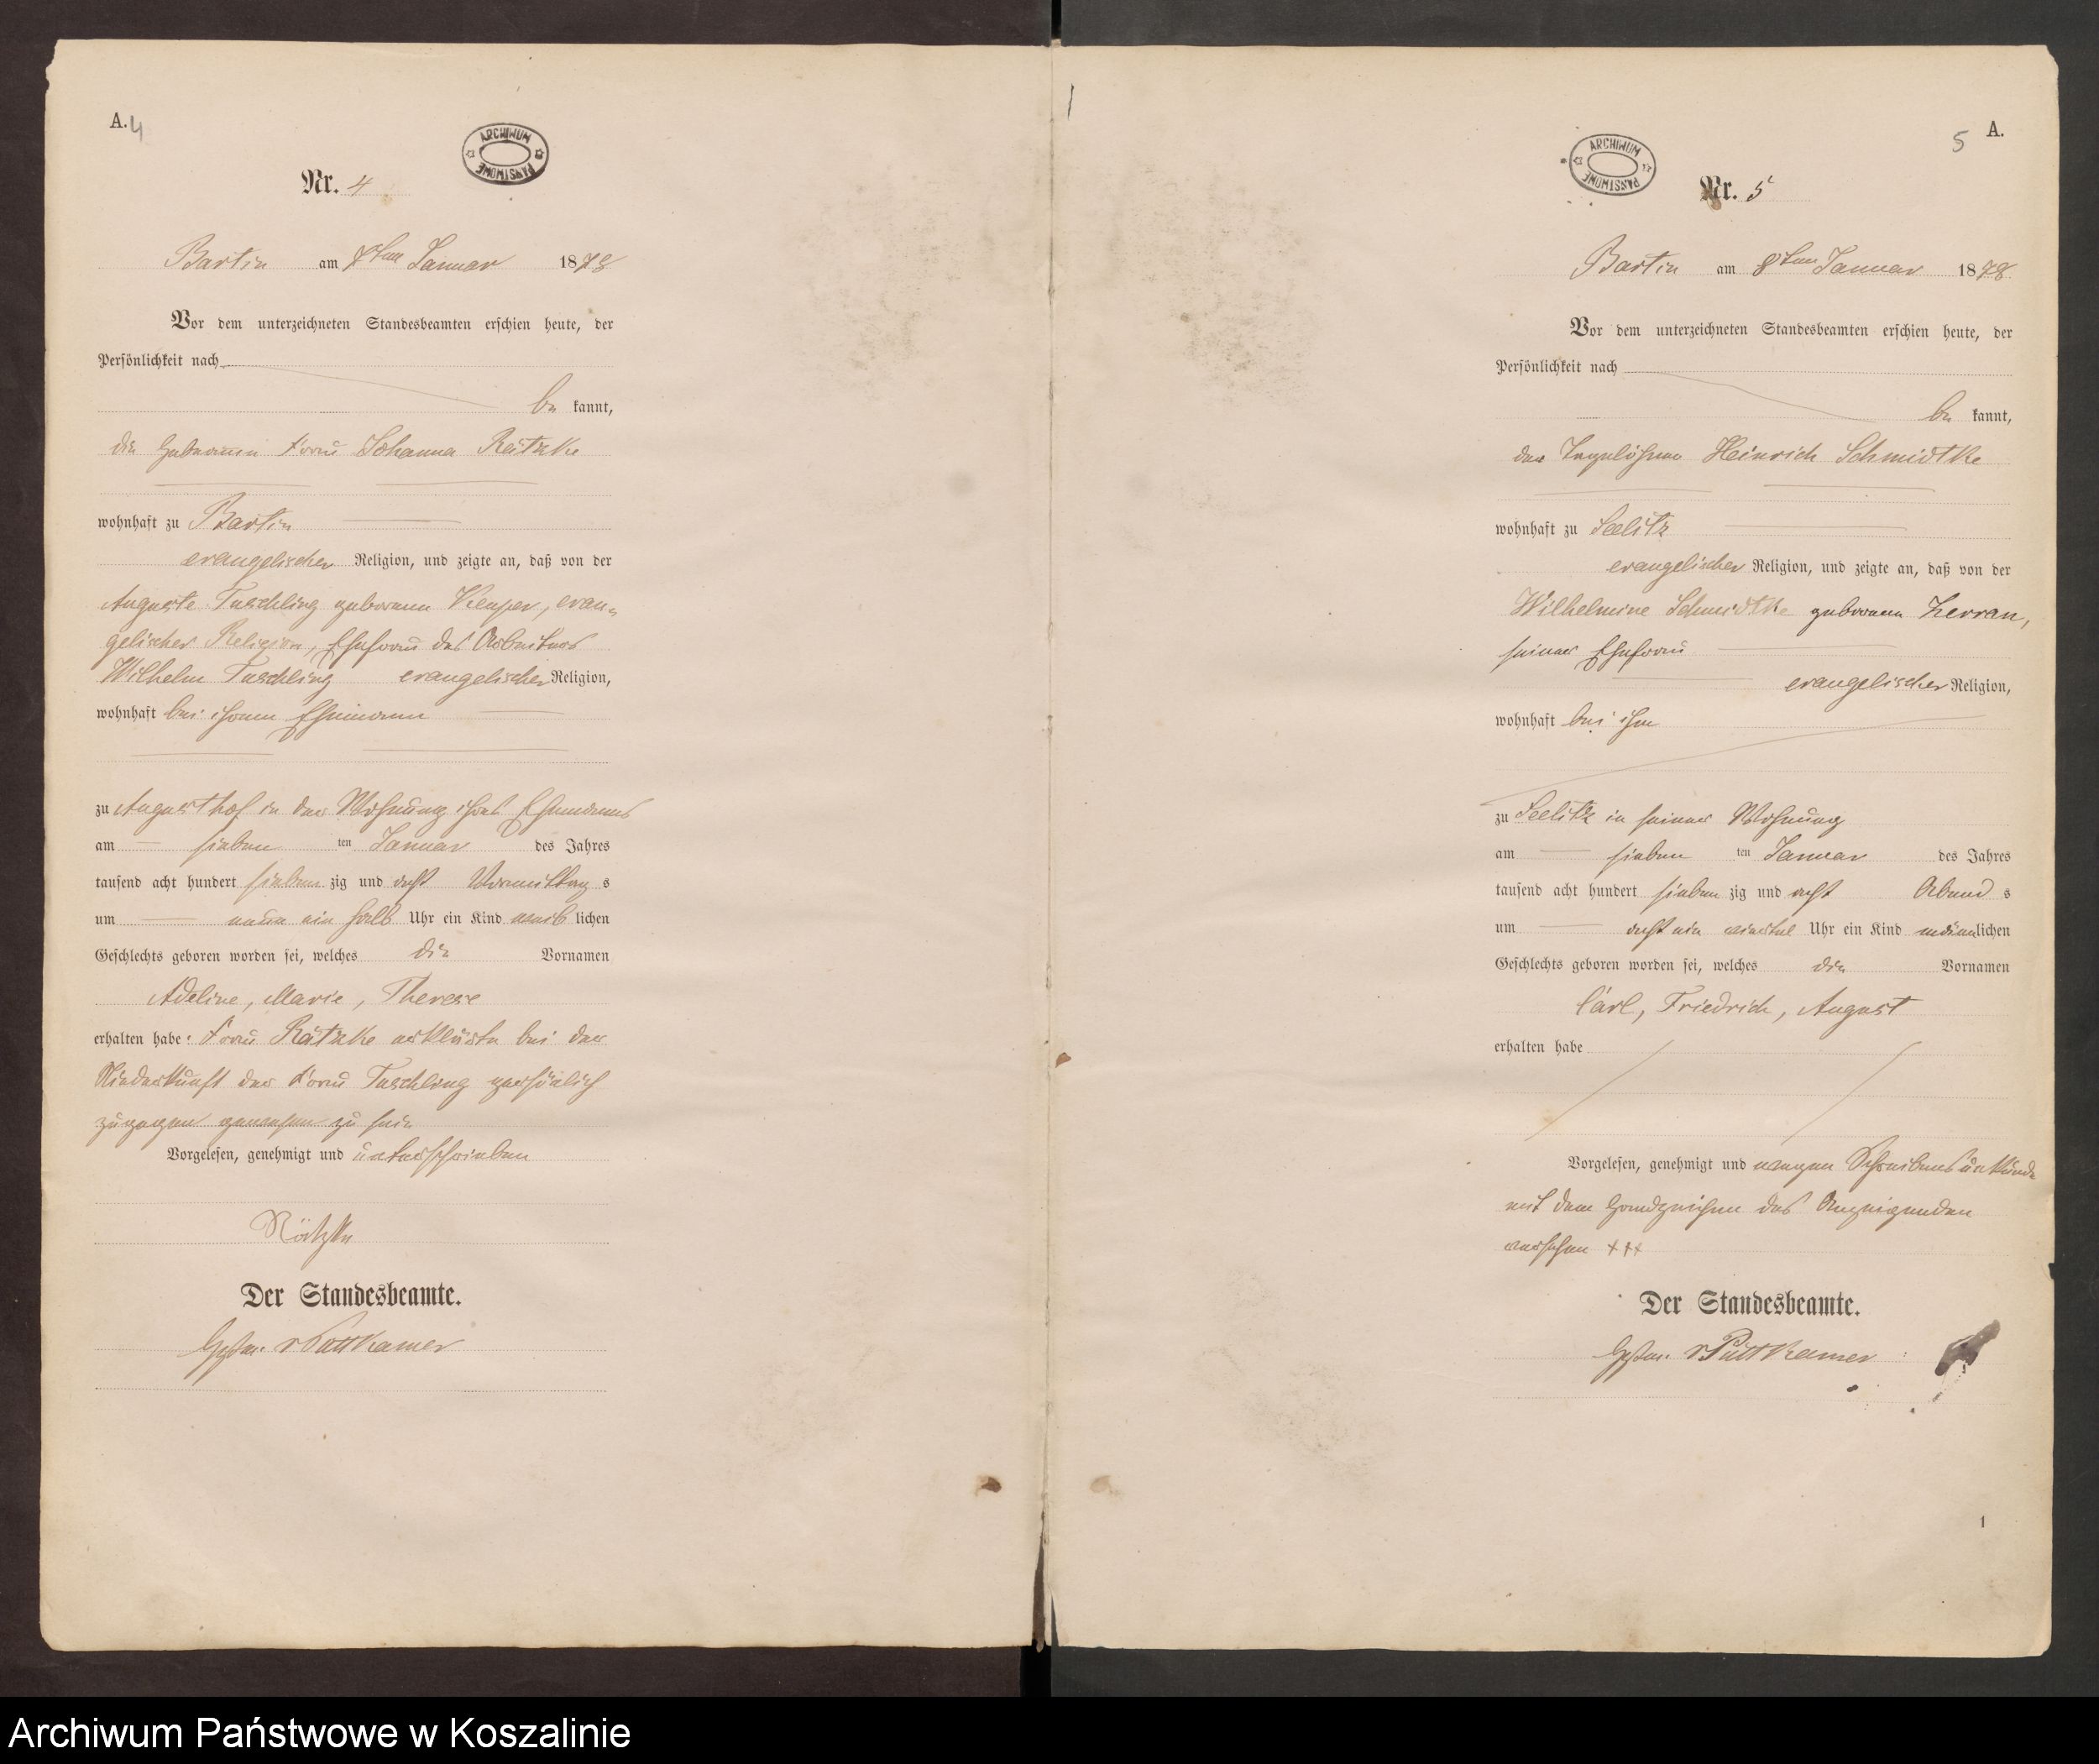 A. 4
ARCHIWUM PAŃSTWOWE
Nr. 4
Bartin am 7ten Januar 1878
Vor dem unterzeichneten Standesbeamten erschien heute, der
Persönlichkeit nach
be kannt,
die Hebamme Frau Johanna Rätzke
wohnhaft zu Bartin
evangelischer Religion, und zeigte an, daß von der
Auguste Taschling geborenen Kemper, evan-
gelischer Religion, Ehefrau des Arbeiters
Wilhelm Taschling evangelischer Religion,
wohnhaft bei ihrem Ehemann
zu Augusthof in der Wohnung ihres Ehemanns
am sieben ten Januar des Jahres
tausend acht hundert sieben zig und acht Vormittag s
um neun ein halb Uhr ein Kind weib lichen
Geschlechts geboren worden sei, welches die Vornamen
Adeline, Marie, Therese
erhalten habe: Frau Rätzke erklärte bei der
Niederkunft der Frau Taschling persönlich
zugegen gewesen zu sein
Vorgelesen, genehmigt und unterschrieben
Rätzke
Der Standesbeamte.
vPuttkamer
5 A.
ARCHIWUM PAŃSTWOWE
Nr. 5
Bartin am 8ten Januar 1878
Vor dem unterzeichneten Standesbeamten erschien heute, der
Persönlichkeit nach
be kannt,
der Tagelöhner Heinrich Schmidtke
wohnhaft zu Seelitz
evangelischer Religion, und zeigte an, daß von der
Wilhelmine Schmidtke geborenen Zerran,
seiner Ehefrau
evangelischer Religion,
wohnhaft bei ihm
zu Seelitz in seiner Wohnung
am sieben ten Januar des Jahres
tausend acht hundert sieben zig und acht Abend s
um acht ein viertel Uhr ein Kind männlichen
Geschlechts geboren worden sei, welches die Vornamen
Carl, Friedrich, August
erhalten habe
Vorgelesen, genehmigt und wegen Schreibensunkunde
mit dem Handzeichen des Anzeigenden
versehen +++
Der Standesbeamte.
vPuttkamer
1
Archiwum Państwowe w Koszalinie